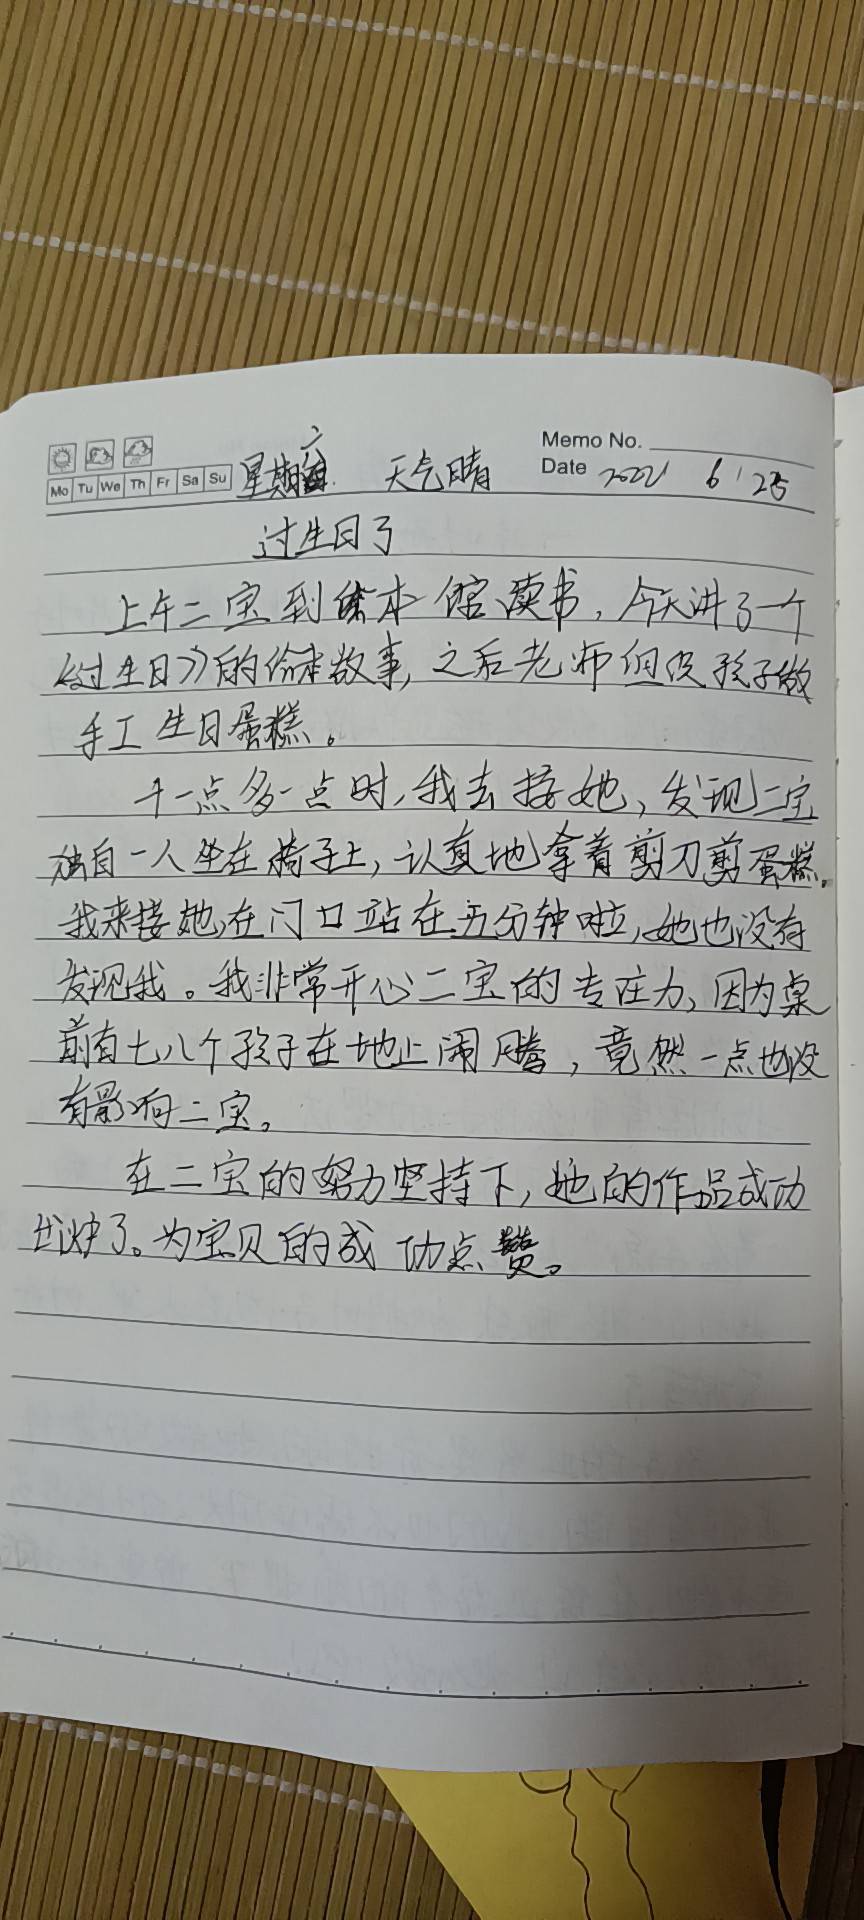 Memo No.
Mo Tu We Th Fr Sa Su 星期六 天气晴 Date 2022 6 25
过生日了
上午二宝到绘本馆读书,今天讲了一个
《过生日》的绘本故事,之后老师但设孩子做
手工生日蛋糕。
十一点多一点时,我去接她,发现二宝
独自一人坐在椅子上,认真地拿着剪刀剪蛋糕。
我来接她,在门口站在五分钟啦,她也没有
发现我。我非常开心二宝的专注力,因为桌
前有七八个孩子在地上闹腾,竟然一点也没
有影响二宝。
在二宝的努力坚持下,她的作品成功
出炉了。为宝贝的成功点赞。